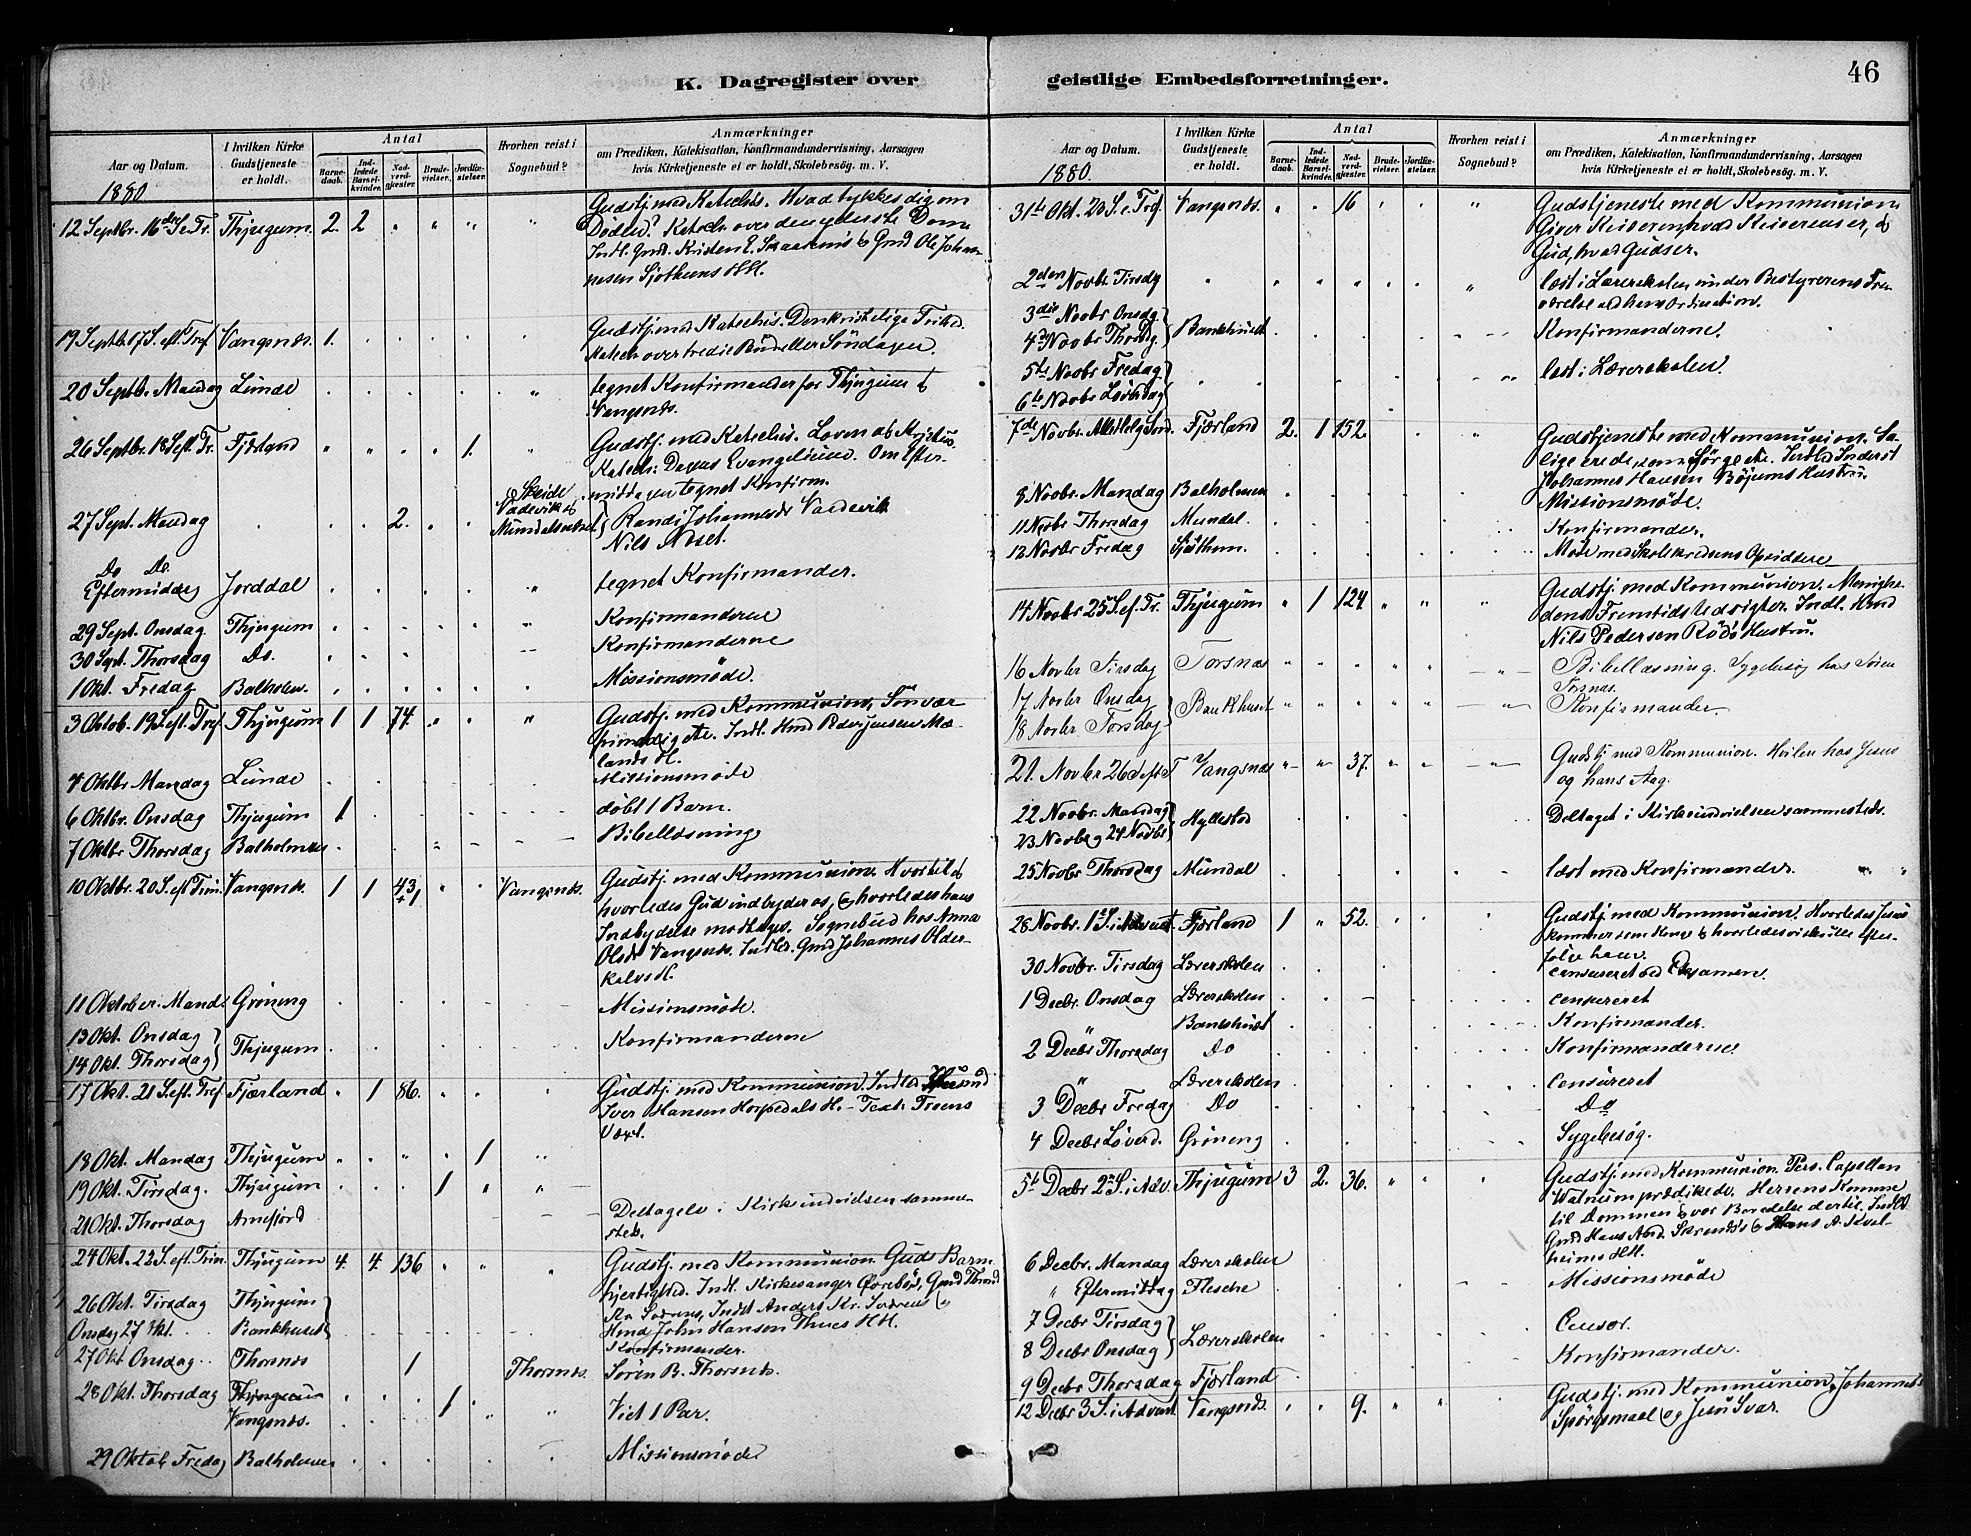 K. Dagregister over
Aar og Datum.
I hvilken Kirke Gudstjeneste er holdt.
Antal
Barnedaab.
Indledede Barselkvinder.
Nadverdgjester.
Brudevielser.
Jordfæstelser.
Hvorhen reist i Sognebud?
Anmærkninger
om Prædiken, Katekisation, Konfirmandundervisning, Aarsagen
hvis Kirketjeneste ei er holdt, Skolebesøg. m. V.
1880
Gudstj. med Katechis. Hvad tykkes dig om
12 Septbr. 16de S. e. Tr. Thjugum 2. 2
Døden? Katech. over den yderste Dom
Indl. Gmd. Kristen E. & Gmd Ole Johan-
nesen Sjøthuns HH.
Gudstj. med Katechis. Den kristelige Frihed.
19 Septbr. 17 S. eft. Tref Vangsnæs. 1.
Katech. over tredie Bud eller Søndagen.
20 Septbr. Mandag Lunde tegnet Konfirmander for Thjugum &
Vangsnæs.
26 Septbr. 18 S. eft. Tr. Fjærland 1. Gudstj. med Katechis. Loven og Kristus
Katech: Dagens Evangelium. Om Efter-
middagen tegnet Konfirm.
27 Sept. Mandag 2. Skeide Vadevik & Mundalsæter
Randi Johannesdr Vadevik
Nils Noset.
Do Do
Eftermiddag Jorddal tegnet Konfirmander.
29 Sept. Onsdag Thjugum Konfirmanderne
30 Sept. Thorsdag Do. Konfirmanderne
1 Okt. Fredag Balholm. Missionsmøde.
3 Oktob. 19 S. eft. Tref Thjugum 1 1 74. Gudstj. med Kommunion. Søn vær
frimodig etc. Indl. Hmd Peder Jensen Mæ-
lands H.
4 Oktbr Mandag Lunde Missionsmøde
6 Oktbr. Onsdag Thjugum 1 døbt 1 Barn.
7 Oktbr Thorsdag Balholmen Bibellæsning
10 Oktbr. 20 S. eft Trin. Vangsnæs. 1 1 43+1 Vangsnæs. Gudstj. med Kommunion. Hvortil &
hvorledes Gud indbyder os, & hvorledes hans
Indbydelse modtages. Sognebud hos Anna
Olsdr Vangsnæs. Indler. Gmd Johannes Older-
kalvs H.
11 Oktober. Mand. Grøneng Missionsmøde.
13 Okt. Onsdag
14 Okt. Thorsdag Thjugum Konfirmanderne
17 Okt. 21 S. eft. Tref Fjærland 1 86. Gudstj. med Kommunion. Indled Husmd
Iver Hansen Horpedals H. - Text: Troens
Væxt.
18 Okt. Mandag Thjugum 1
19 Okt. Tirsdag. Thjugum 1
21 Okt. Thorsdag Arnefjord Deltagelse i Kirkeindvielsen samme-
steds.
24 Okt. 22 S. eft. Trin. Thjugum 4. 4. 136 Gudstj. med Kommunion. Guds Barm-
hjertighed. Indl. Kirkesanger Ørebøs, Gmd Thrond
26 Okt. Tirsdag Thjugum
Indst Anders Kr. &
Onsdag 27 Okt. Bankhuset Hmd John Hansen Thues HH.
Konfirmander.
27 Okt Onsdag Thorsnæs 1 Thorsnæs. Søren B. Thorsnæs.
28 Okt. Thorsdag Thjugum
Vangsnæs. 1 Viet 1 Par.
29 Oktob. Fredag Balholmen Missionsmøde

geistlige Embedsforretninger.
46
Aar og Datum.
I hvilken Kirke Gudstjeneste er holdt.
Antal
Barnedaab.
Indledede Barselkvinder.
Nadverdgjester.
Brudevielser.
Jordfæstelser.
Hvorhen reist i Sognebud?
Anmærkninger
om Prædiken, Katekisation, Konfirmandundervisning, Aarsagen
hvis Kirketjeneste ei er holdt, Skolebesøg. m. V.
1880.
31te Okt. 23 S. e. Tref. Vangsnæs. 16 Gudstjeneste med Kommunion
Giver Keiseren, hvad Keiserens er, &
Gud, hvad Guds er.
2den Novbr. Tirsdag læst i Lærerskolen under Bestyrerens Fra-
værelse ved hans Ordination.
3die Novbr Onsdg
4de Novbr Thorsdg. Bankhuset Konfirmanderne.
5te Novbr Fredag
6te Novbr Løverdag læst i Lærerskolen.
7de Novbr. Allehelg. Sønd. Fjærland 2. 1 152. Gudstjeneste med Kommunion. Sa-
lige ere de, som sørge etc. Indled Inderst
Johannes Hansen Bøjums Hustru.
8 Novbr. Mandag Balholmen Missionsmøde.
11 Novbr Thorsdag Mundal. Konfirmander.
12 Novbr Fredag Sjøthun. Møde med Skolekredsens Opsiddere
14 Novbr 25 S. ef. Tr. Thjugum 1 124. Gudstj. med Kommunion. Menighe-
dens Fremtidsudsigter. Indl. Hmd
Nils Pedersen Hustru.
16 Novbr Tirsdag Torsnæs Bibellæsning. Sygebesøg hos Søren
Torsnæs.
17 Novbr Onsdag
18 Novbr Torsdag Bankhuset Konfirmander.
21. Novbr 26 S eft T Vangsnæs 37. Gudstj med Kommunion. Hvilen hos Jesus
og hans Aag.
22 Novbr. Mandag
23 Novbr & 24 Novbr Hyllestad Deltaget i Kirkeindvielsen sammesteds.
25 Novbr Thorsdag Mundal læst med Konfirmander.
28 Novbr. 1 S. i Advent. Fjærland 1 52. Gudstj. med Kommunion. Hvorledes Jesus
kommer som Konge & hvorledes vi skulle efter-
følge ham.
30 Novbr. Tirsdag Lærerskolen censureret ved Examen.
1 Decbr. Onsdag Lærerskolen censureret
" Bankhuset Konfirmander.
2 Decbr Thorsdag Do Konfirmanderne
" Lærerskolen censureret
3 Decbr Fredag Do Do
4 Decbr Løverd. Grøneng Sygebesøg.
5te Decbr 2 S. i Adv. Thjugum 3 2. 36. Gudstj. med Kommunion. Pers. Capellan
Watnum prædikede. Herrens Komme
til Dommen & vor Beredelse dertil. Indl
Gmd Hans And. & Hans A. Kvel-
heims HH.
6 Decbr. Mandag Lærerskolen
" Eftermiddag Flesche Missionsmøde
7 Decbr Tirsdag
8 Decbr Onsdag Lærerskolen Censor.
9 Decbr Thorsdag Fjærland Konfirmander.
12 Decbr 3 S. i Advent Vangsnæs. 9. Gudstj. med Kommunion. Johannes's
Spørgsmaal og Jesu Svar.